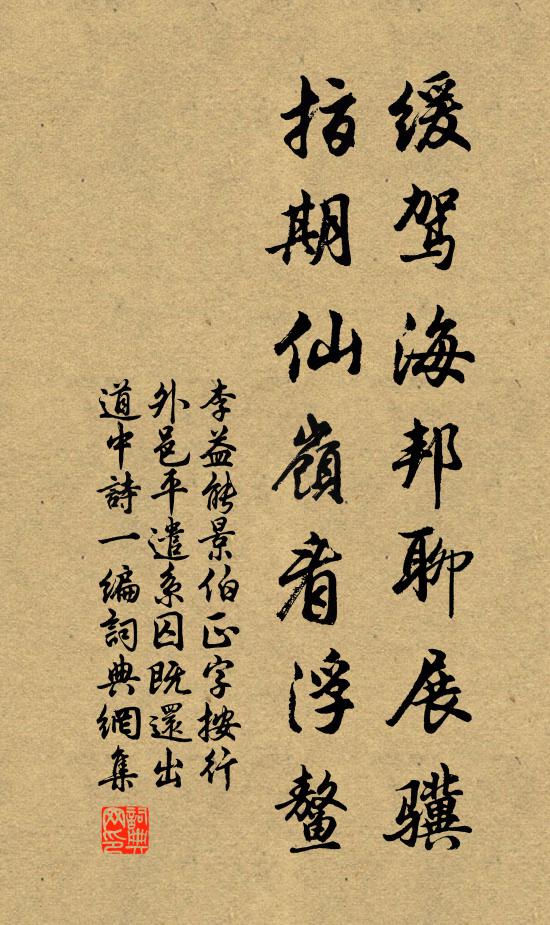 缓驾海邦聊展骥
指期仙嶺看浮鳌
李益能景伯正字按行
外邑平遣系囚既還出
道中詩一編詞典網集
詞典网印